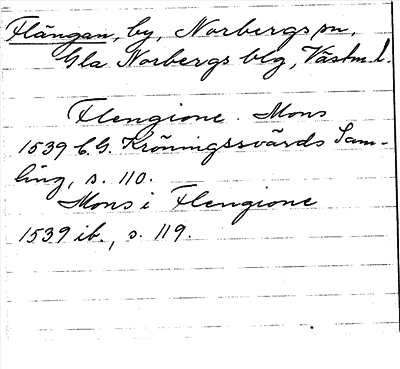 Flängan, by, Norbergs sn,
Gla Norbergs blg, Västm. l.
Flengione. Mons
1539 C.G. Kröningssvärds Sam-
ling, s. 110.
Mons i Flengione
1539 ib., s. 119.